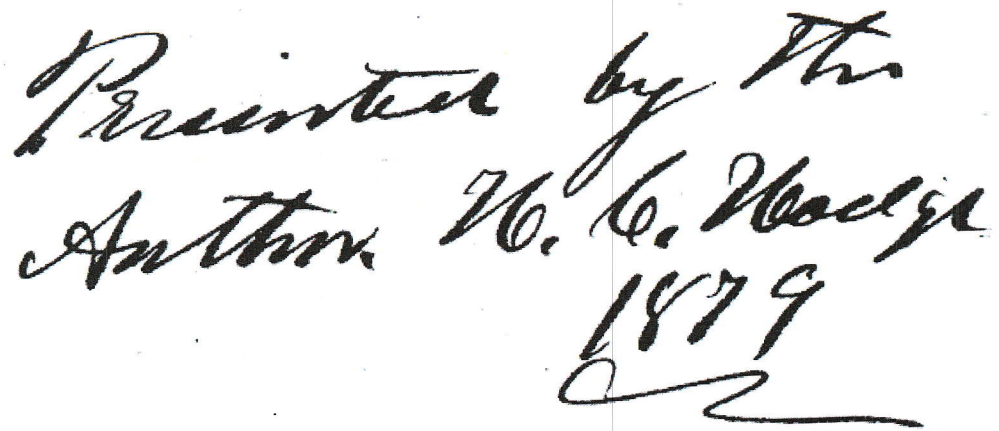 Presented by the
Author. H. C. Hodge
1879